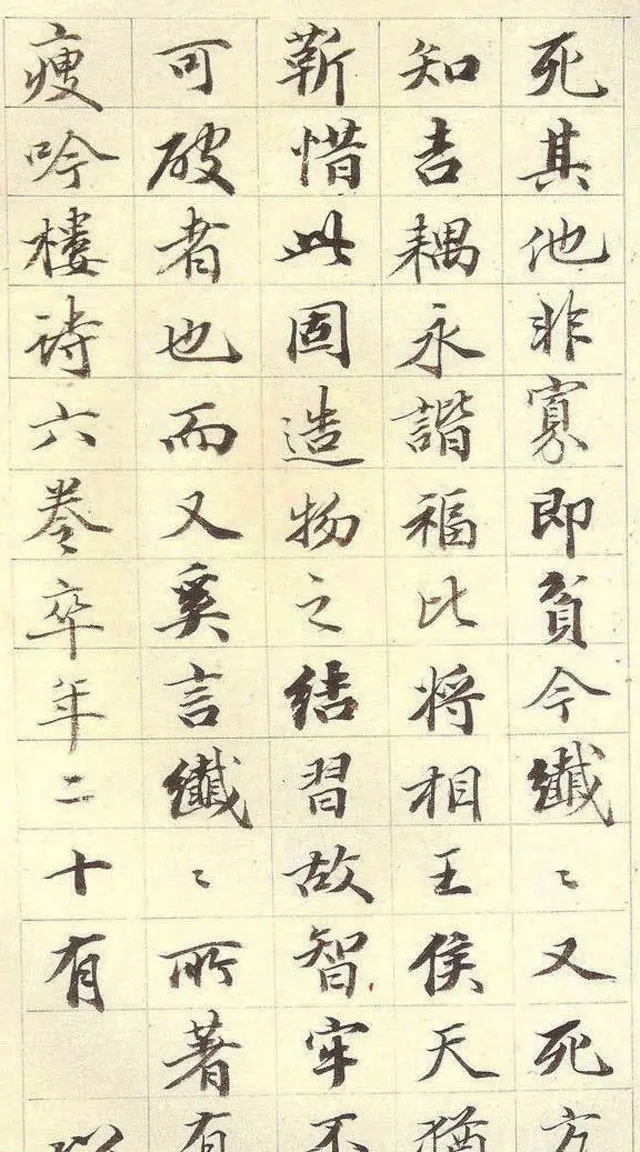 死其他非寡即貧今纖〻又死方
知吉耦永諧福比將相王侯天猶
靳惜此固造物之結習故智牢不
可破者也而又奚言纖〻所著有
瘦吟樓詩六卷卒年二十有